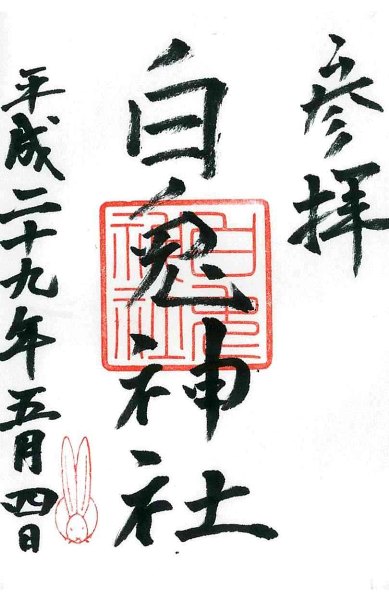 参拝
白兎神社
白兎神社
平成二十九年五月四日